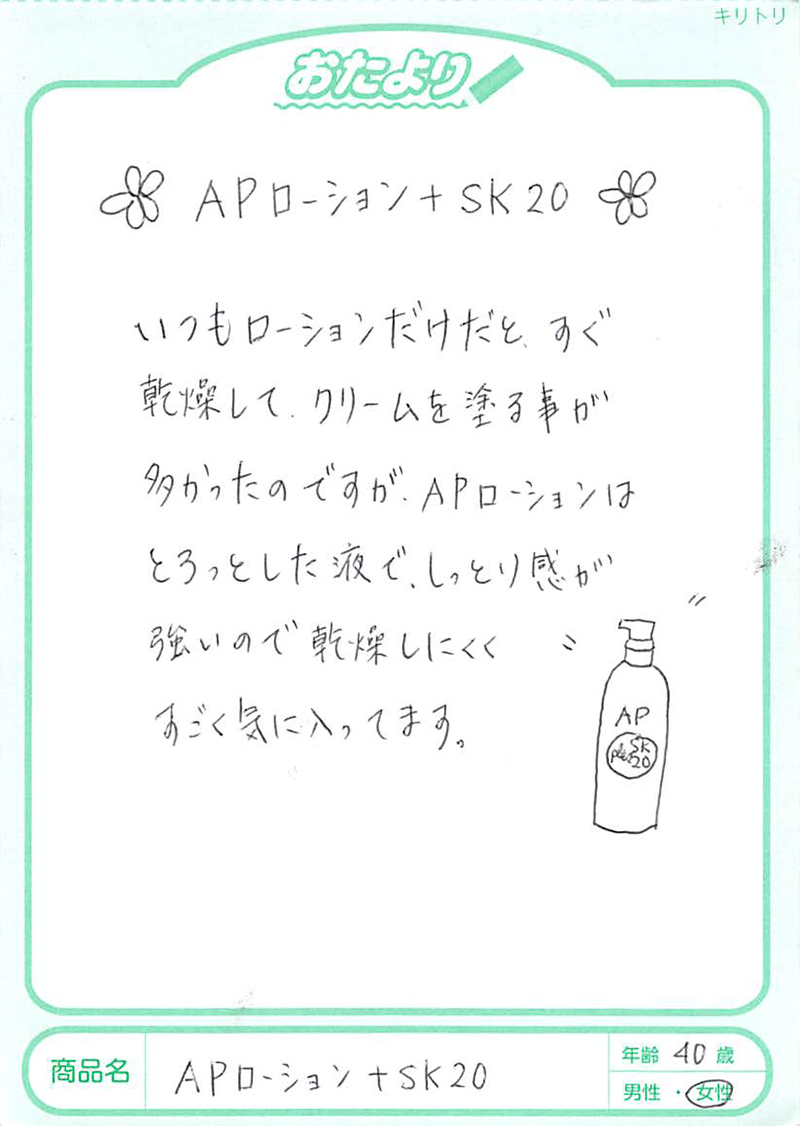 キリトリ
おたより
APローション+SK20
いつもローションだけだと、すぐ
乾燥して、クリームを塗る事が
多かったのですが、APローションは
とろっとした液で、しっとり感が
強いので乾燥しにくく
すごく気に入ってます。
AP
plus SK
20
商品名 APローション+SK20
年齢 40 歳
男性・女性